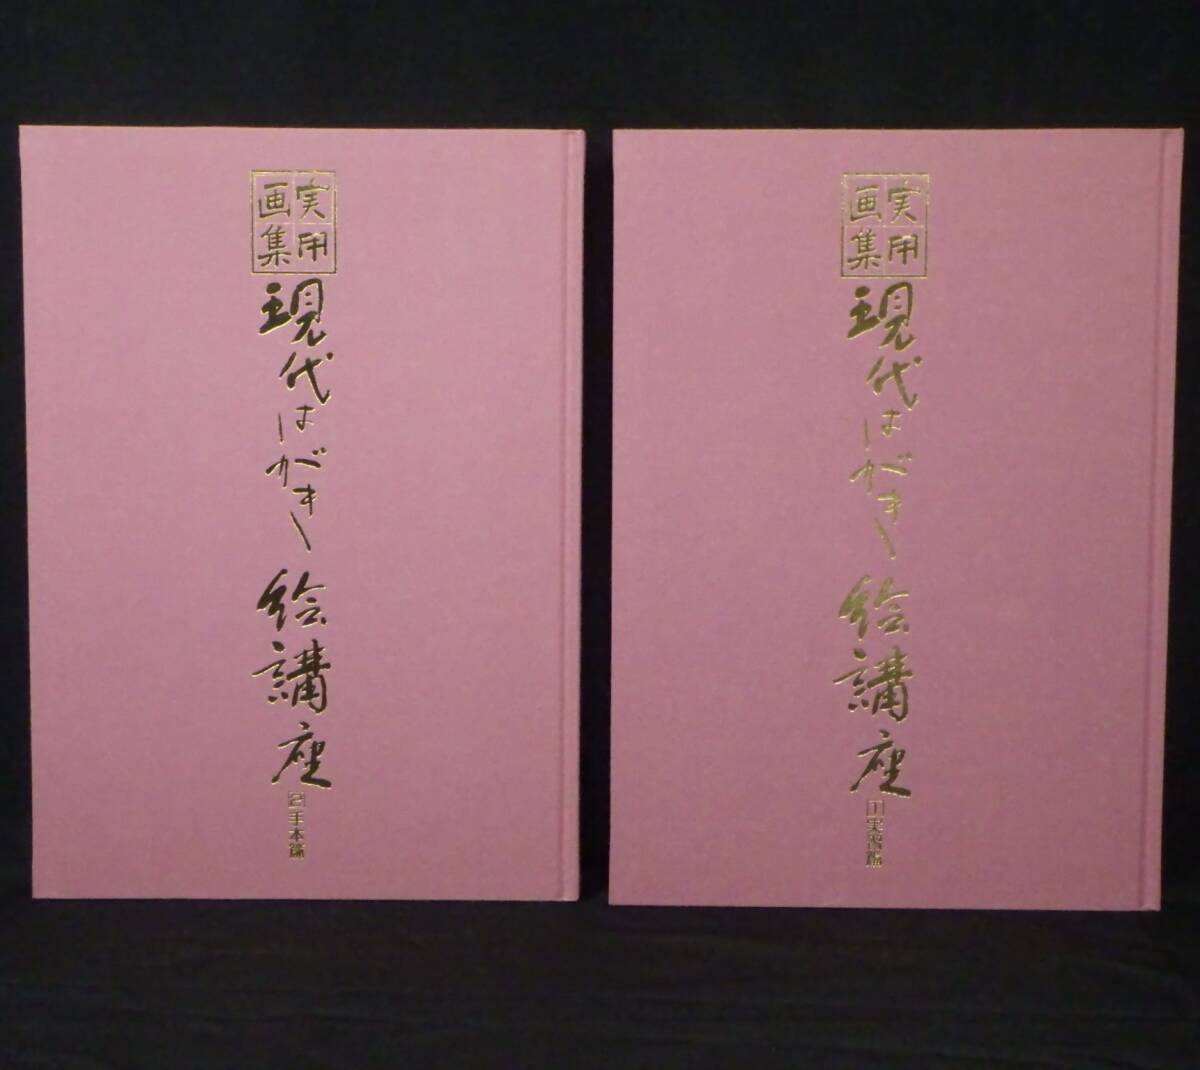 実用
画集
現代はがき絵講座
1 実習篇
実用
画集
現代はがき絵講座
2 手本篇